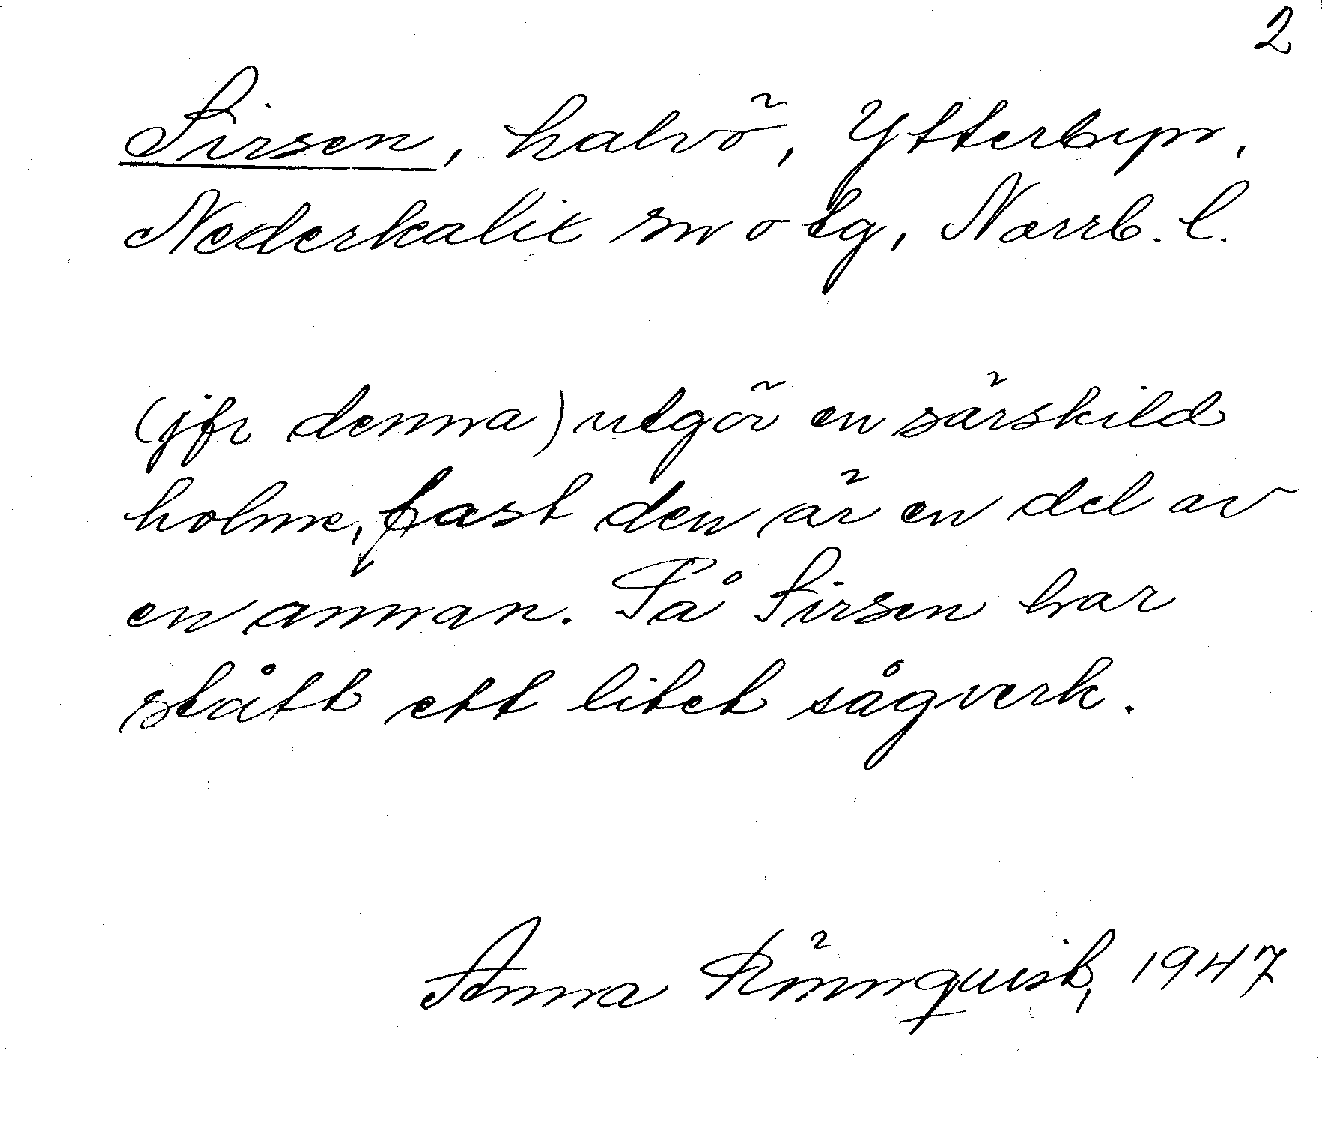 2
Sirsen, halvö, Ytterbyn,
Nederkalix sn o tg, Norrb. l.
(jfr denna) utgör en särskild
holme, fast den är en del av
en annan. På Sirsen har
stått ett litet sågverk.
Anna Rönnquist, 1947